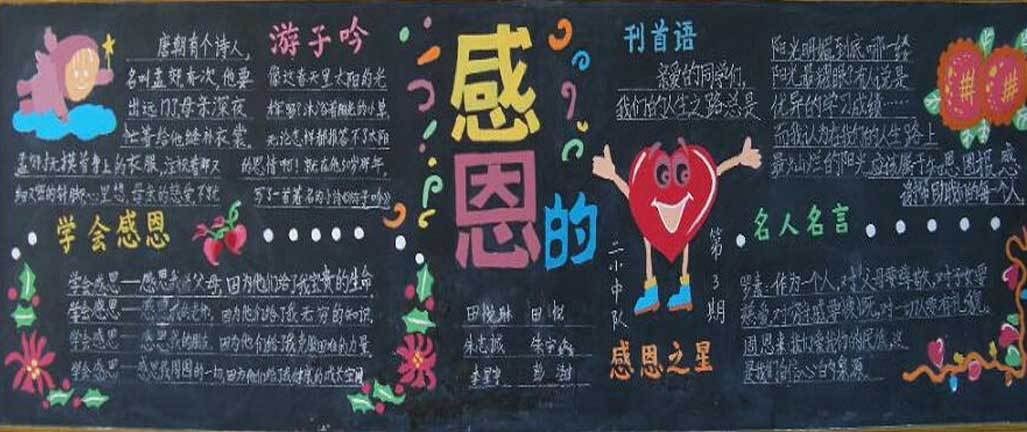 游子吟
唐朝有个诗人,
名叫孟郊有次,他要
出远门了母亲深夜
忙着给他缝补衣裳。
孟郊抚摸着身上的衣服,注视着那又
细又密的针脚心里想,母亲的慈爱
像这春天里太阳的光
无论怎样都报答不了太阳
的恩情啊!就在他50岁那年,
写了一首著名的小诗《游子吟》
学会感恩
学会感恩——感恩我的父母,因为他们给了我宝贵的生命
学会感恩——感恩我的老师,因为他们给了我无穷的知识,
学会感恩——感恩我的朋友,因为他们给了我克服困难的力量,
学会感恩——感恩我周围的一切,因为他们给了我健康的成长空间
感恩的
田悦琳
朱志诚
刊首语
亲爱的同学们,
我们的人生之路总是
阳光明媚到底哪一缕
阳光最耀眼?有人说是
优异的学习成绩……
而我认为在我们的人生路上
最灿烂的阳光,应该属于感恩,回报,感
谢帮助我们的每一个人,
二小中队
第3期
感恩之星
名人名言
作为一个人,对父母要尊敬,对子女要
慈爱,对穷亲戚要慷慨,对一切人要有礼貌。